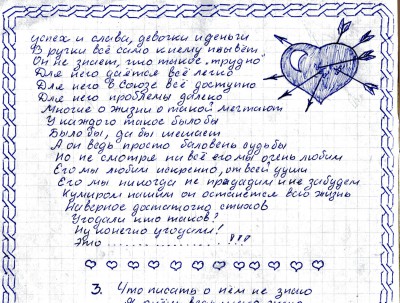 успех и слава, девочки и деньги
В ручки всё само к нему плывёт
Он не знает, что такое „трудно"
Для него даётся всё легко
Для него в Союзе всё доступно
Для него проблемы далеко
Многие о жизни о такой мечтают
У каждого такое было бы
Было бы, да бы мешает
А он ведь просто баловень судьбы
Но не смотря на всё его мы очень любим
Его мы любим искренно, от всей души
Его мы никогда не предадим и не забудем
Кумиром нашим он останется всю жизнь
Наверное достаточно стихов
Угодали кто таков?
Ну конечно угодали!
Это ....................!!!
3. Что писать о нём не знаю